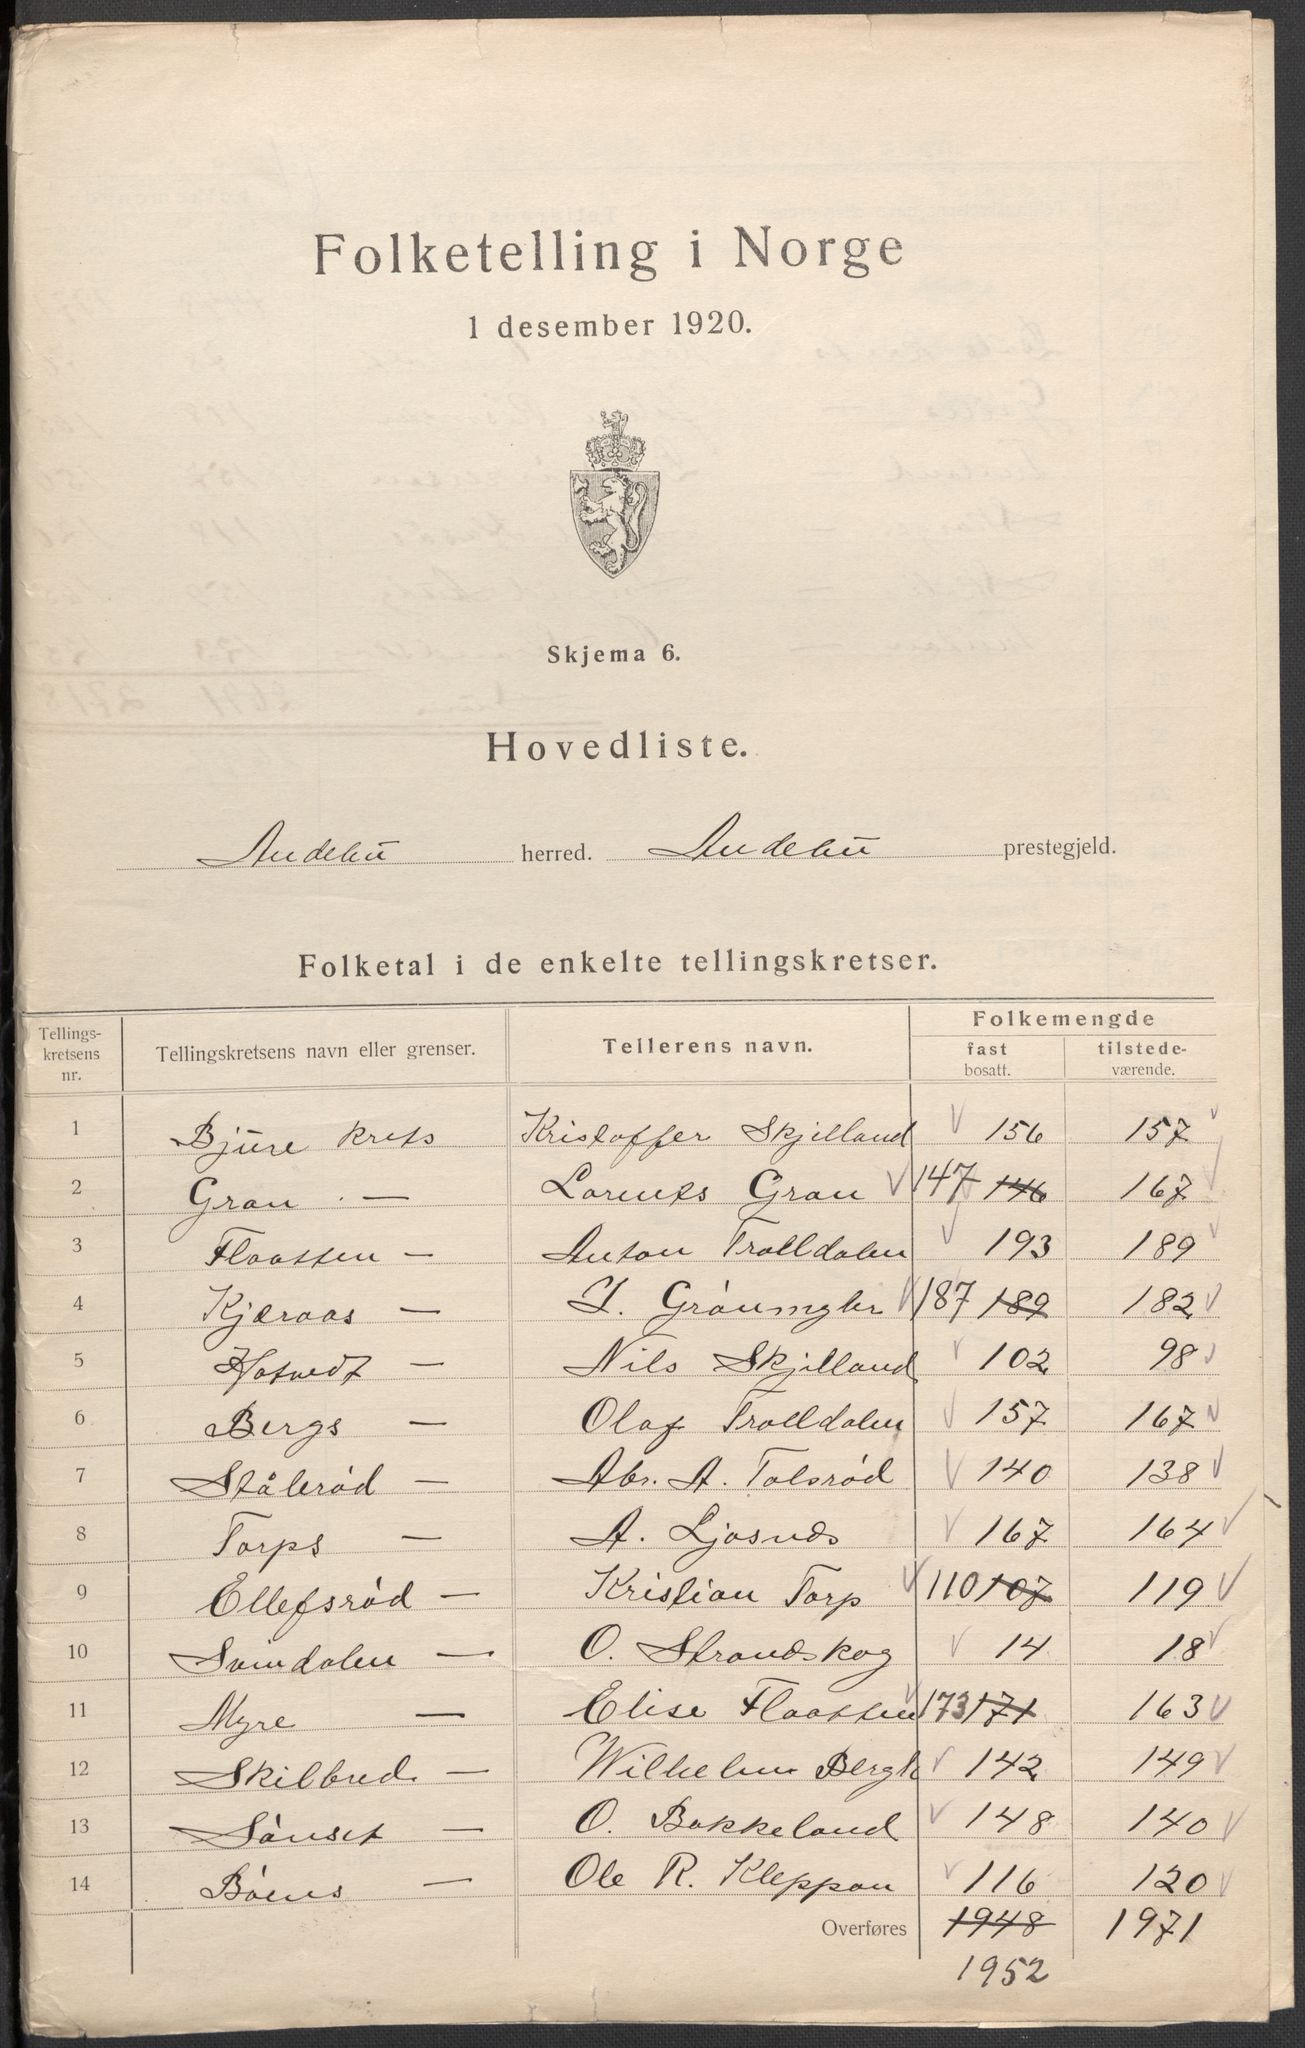 Folketelling i Norge
1 desember 1920.
Skjema 6.
Hovedliste.
Andebu herred. Andebu prestegjeld.
Folketal i de enkelte tellingskretser.
Tellings-kretsens nr. Tellingskretsens navn eller grenser. Tellerens navn. Folkemengde
fast bosatt. tilstede-værende.
1 Bjüre krets Kristoffer Skjelland 156 157
2 Gran — Lorents Gran 147 146 167
3 Flaatten — Anton Trolldalen 193 189
4 Kjæraas — 187 189 182
5 Hotvedt — Nils Skjelland 102 98
6 Bergs — Olaf Trolldalen 157 167
7 Stålerød — Abr. A. Tolsrød 140 138
8 Torps — A. Ljosnæs 167 164
9 Ellefsrød — Kristian Torp 110 107 119
10 Svindalen — O. Strandskog 14 18
11 Myre — Elise Flaatten 173 171 163
12 Skilbred — Wilhelm Bergh 142 149
13 Sønset — O. Bakkeland 148 140
14 Bøens — Ole R. Kleppan 116 120
Overføres 1948 1971
1952